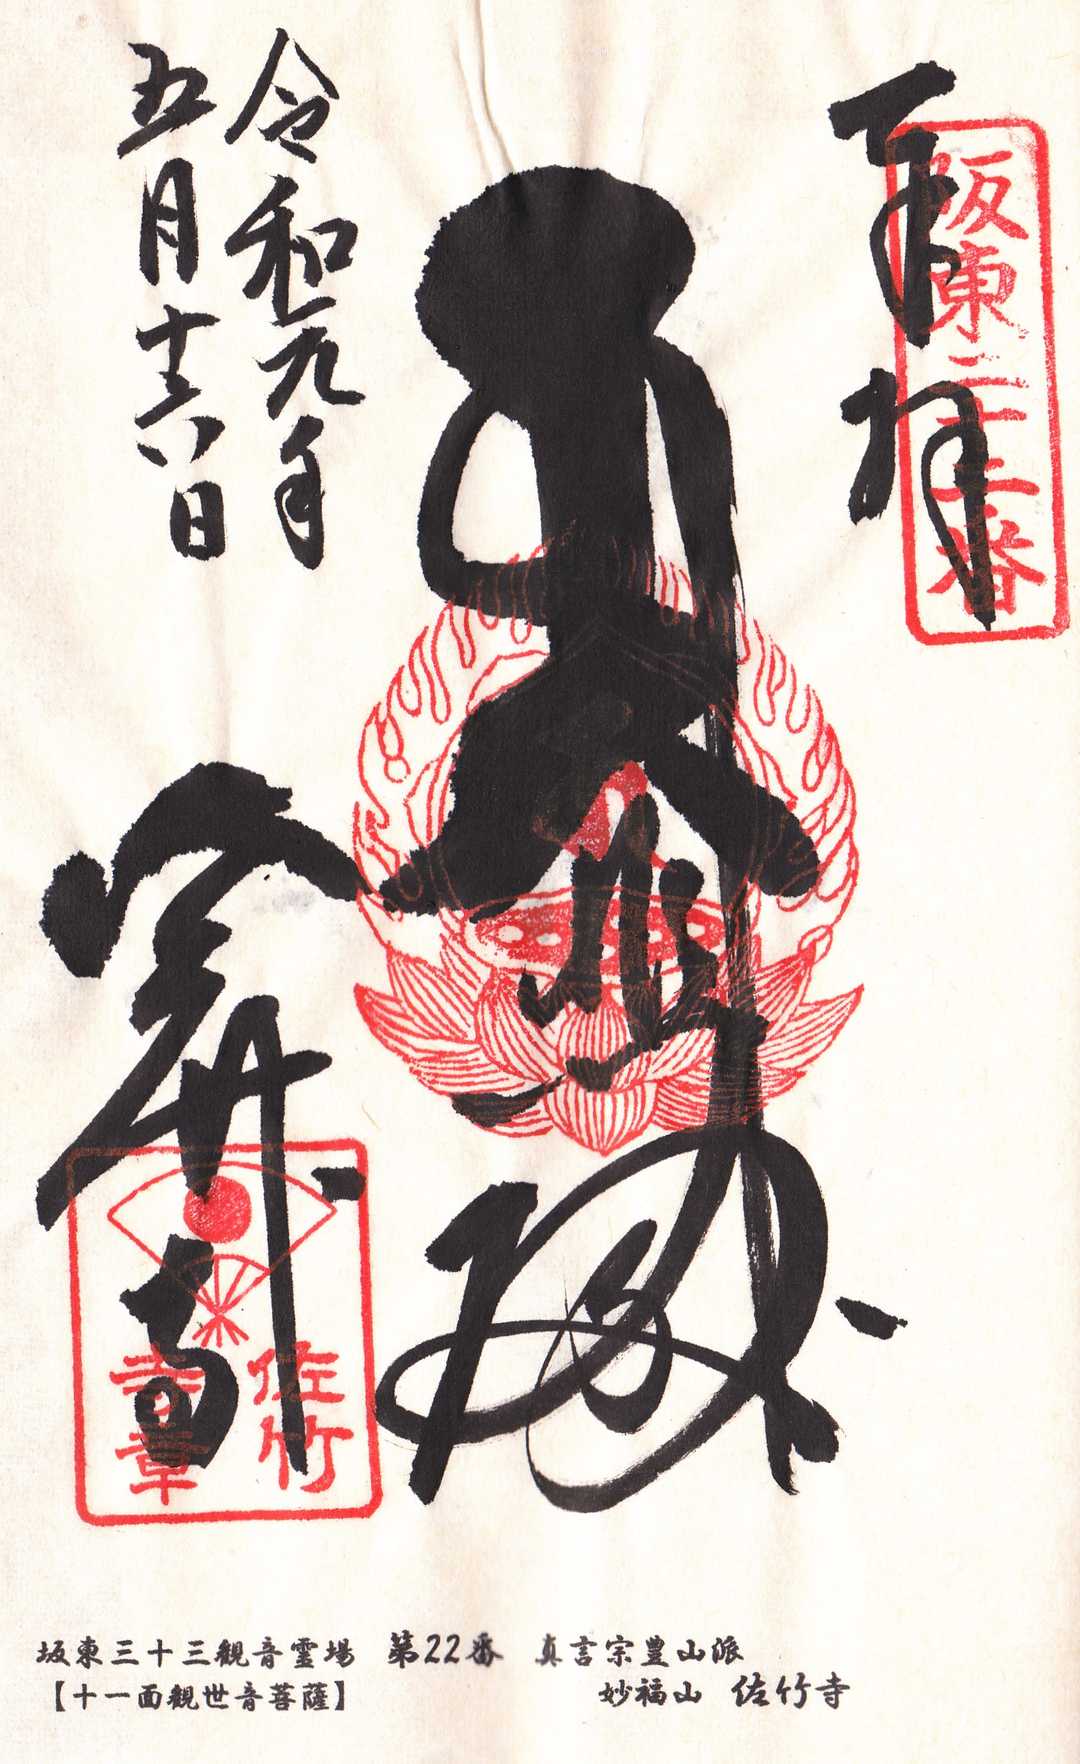 奉拝
阪東二十二番
大悲殿
令和元年
五月十六日
佐竹
寺章
坂東三十三観音霊場 第22番 真言宗豊山派
【十一面観世音菩薩】 妙福山 佐竹寺